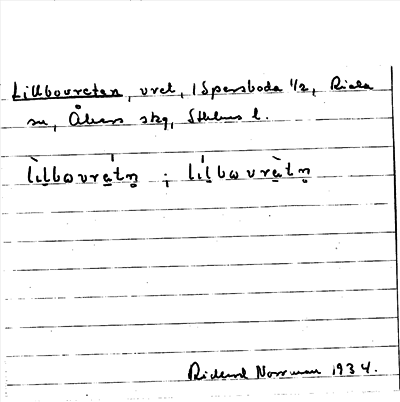 Lillbouvreten, vret, i Spersboda 1/2, Riala
sn, Åkers skg, Sthlms l.
lìl̠bωvra̠tn̥ ; lìl̠bωvrà̠tn̥
Rickard Norrman 1934.